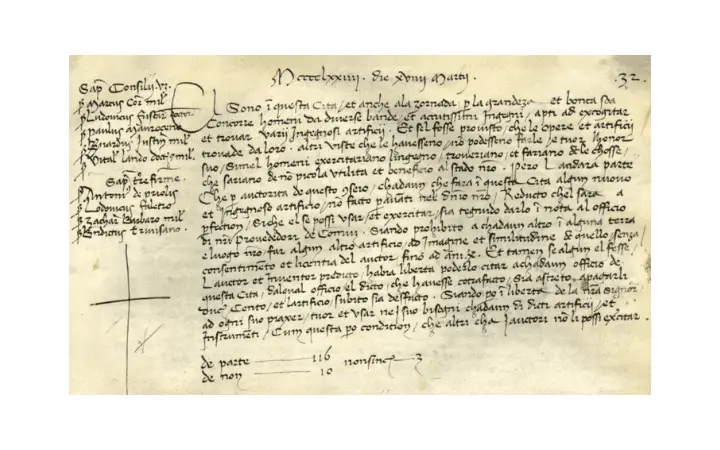 Mcccclxxiiij. die xviiij Martij.
32.
Sap. Consilij. vj.
ꝑ Marcus Cor. mil.
ꝑ Ludovicus
ꝑ Paulus Maurocenus
mil.
ꝑ Vital lando doct. mil.
Sap. t. re firme.
Antoni de priolis
ꝑ Lodovicus
ꝑ Zachar. Barbaro mil.
ꝑ Endicus Trivisano.
El Sono ĩ questa Cita, et anche ala zornada ꝑ la grandeza et bonta soa
Concorre homeni da diverse bande, et acutissimi Ingegni, apti ad excogitar
et trovar varij Ingegnosi artificij. Et sel fosse provisto, che le opere et artificij
trovade da loro, altri viste che le havesseno, nõ podesseno farle, e tuor lhonor
suo, simel homeni exercitariano lingegno, troveriano, et fariano dele chosse,
che sariano de nõ picola utilita et beneficio al stado nřo. Pero Landara parte
che ꝑ auctorita de questo 9seio, chadaun che fara ĩ questa Cita algun nuovo
et Ingegnoso artificio, nõ facto ꝑ avanti nel dñio nřo, Reducto chel sara a
ꝑfection, siche el se possi usar, et exercitar, sia tegnudo darlo ĩ nota al officio
di nři provededori de Comun. Siando prohibito a chadaun altro ĩ alguna terra
e luogo nřo, far algun altro artificio, ad Imagine et similitudine de quello, senza
consentimento et licentia del auctor, fino ad ãni. x. Et tamen se algun el fesse,
Lauctor et Inventor predicto, habia liberta poderlo citar a chadaun officio de
questa Cita, dal qual officio el dicto, che havesse cõtrafacto, sia astreto, a pagarli
duc. Cento, et lartificio, subito sia desfacto. Siando ꝑo ĩ liberta de la nřa Signor.
ad ogni suo piaxer, tuor et usar ne i suo bisogni chadaun di dicti artificij, et
Instrumẽti, Cum questa ꝑo condition, che altri cha i auctori nõ li possi exercitar.
de parte 116 nonsinc. 3
de non 10